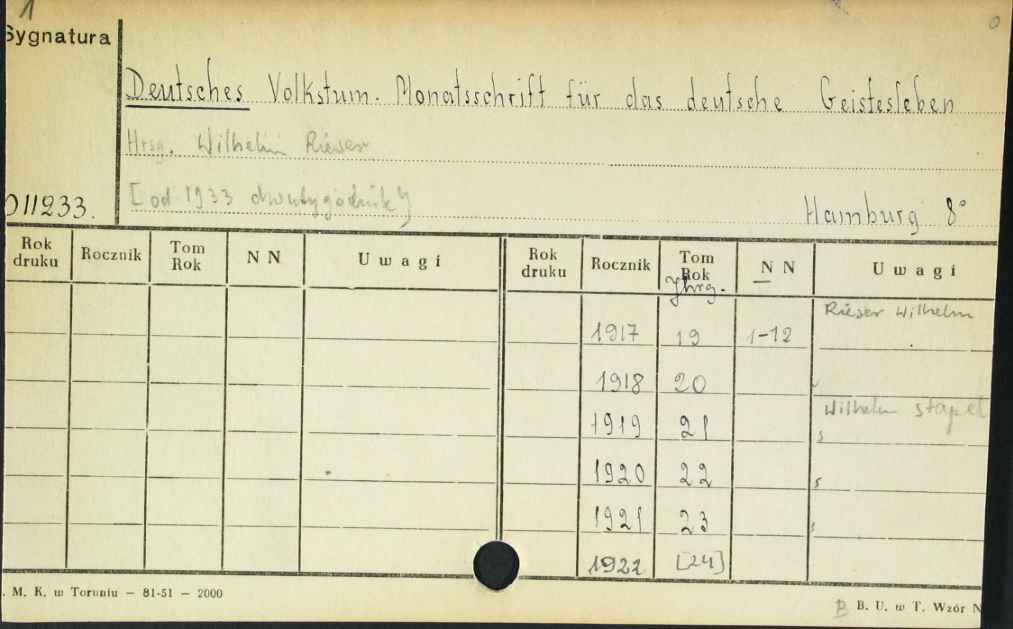 1
Sygnatura
Deutsches Volkstum. Monatsschrift für das deutsche Geistesleben
Hrsg. Wilhelm Rieser
[od 1933 dwutygodnik]
011233.
Hamburg 8°
Rok druku Rocznik Tom Rok N N Uwagi Rok druku Rocznik Tom Rok N N Uwagi
Jhrg.
Rieser Wilhelm
1917 19 1-12
1918 20
Wilhelm Stapel
1919 21
1920 22
1921 23
1922 [24]
. M. K. w Toruniu — 81-51 — 2000
B. U. w T. Wzór N